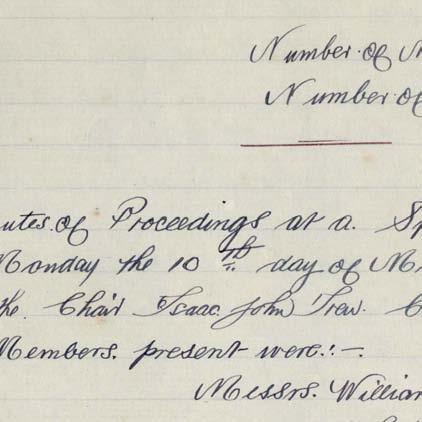 Number of
Number of
utes of Proceedings at a Sp
Monday the 10th day of M
the Chair Isaac John Trew. C
Members present were:—
Messrs. William